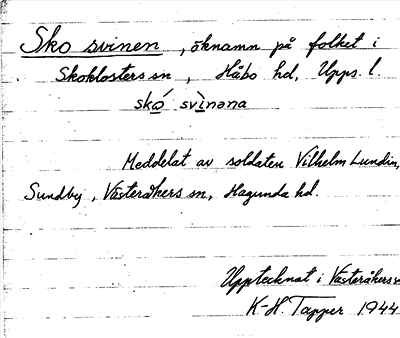 Sko svinen, öknamn på folket i
Skoklosters sn, Håbo hd, Upps. l.
skó svìnəna
Meddelat av soldaten Vilhelm Lundin,
Sundby, Västeråkers sn, Hagunda hd.
Upptecknat i Västeråkers
K-H. Tapper 1944